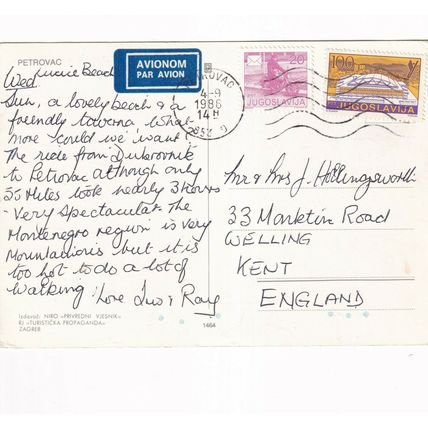 PETROVAC
AVIONOM
PAR AVION
Lucice Beach
Wed
Sun, a lovely beach & a
friendly taverna what
more could we want
The ride from Dubrovnik
to Petrovac although only
55 Miles took nearly 3 hours
- Very Spectacular. The
Montenegro region is very
Mountainous but it is
too hot to do a lot of
walking. Love & Ray
4-9
1986
14H
20
JUGOSLAVIJA
100
JUGOSLAVIJA
Mr & Mrs J. Hollingsworth
33 Marketin Road
WELLING
KENT
ENGLAND
Izdavač: NIRO »PRIVREDNI VJESNIK«
RJ »TURISTIČKA PROPAGANDA«
ZAGREB
1464